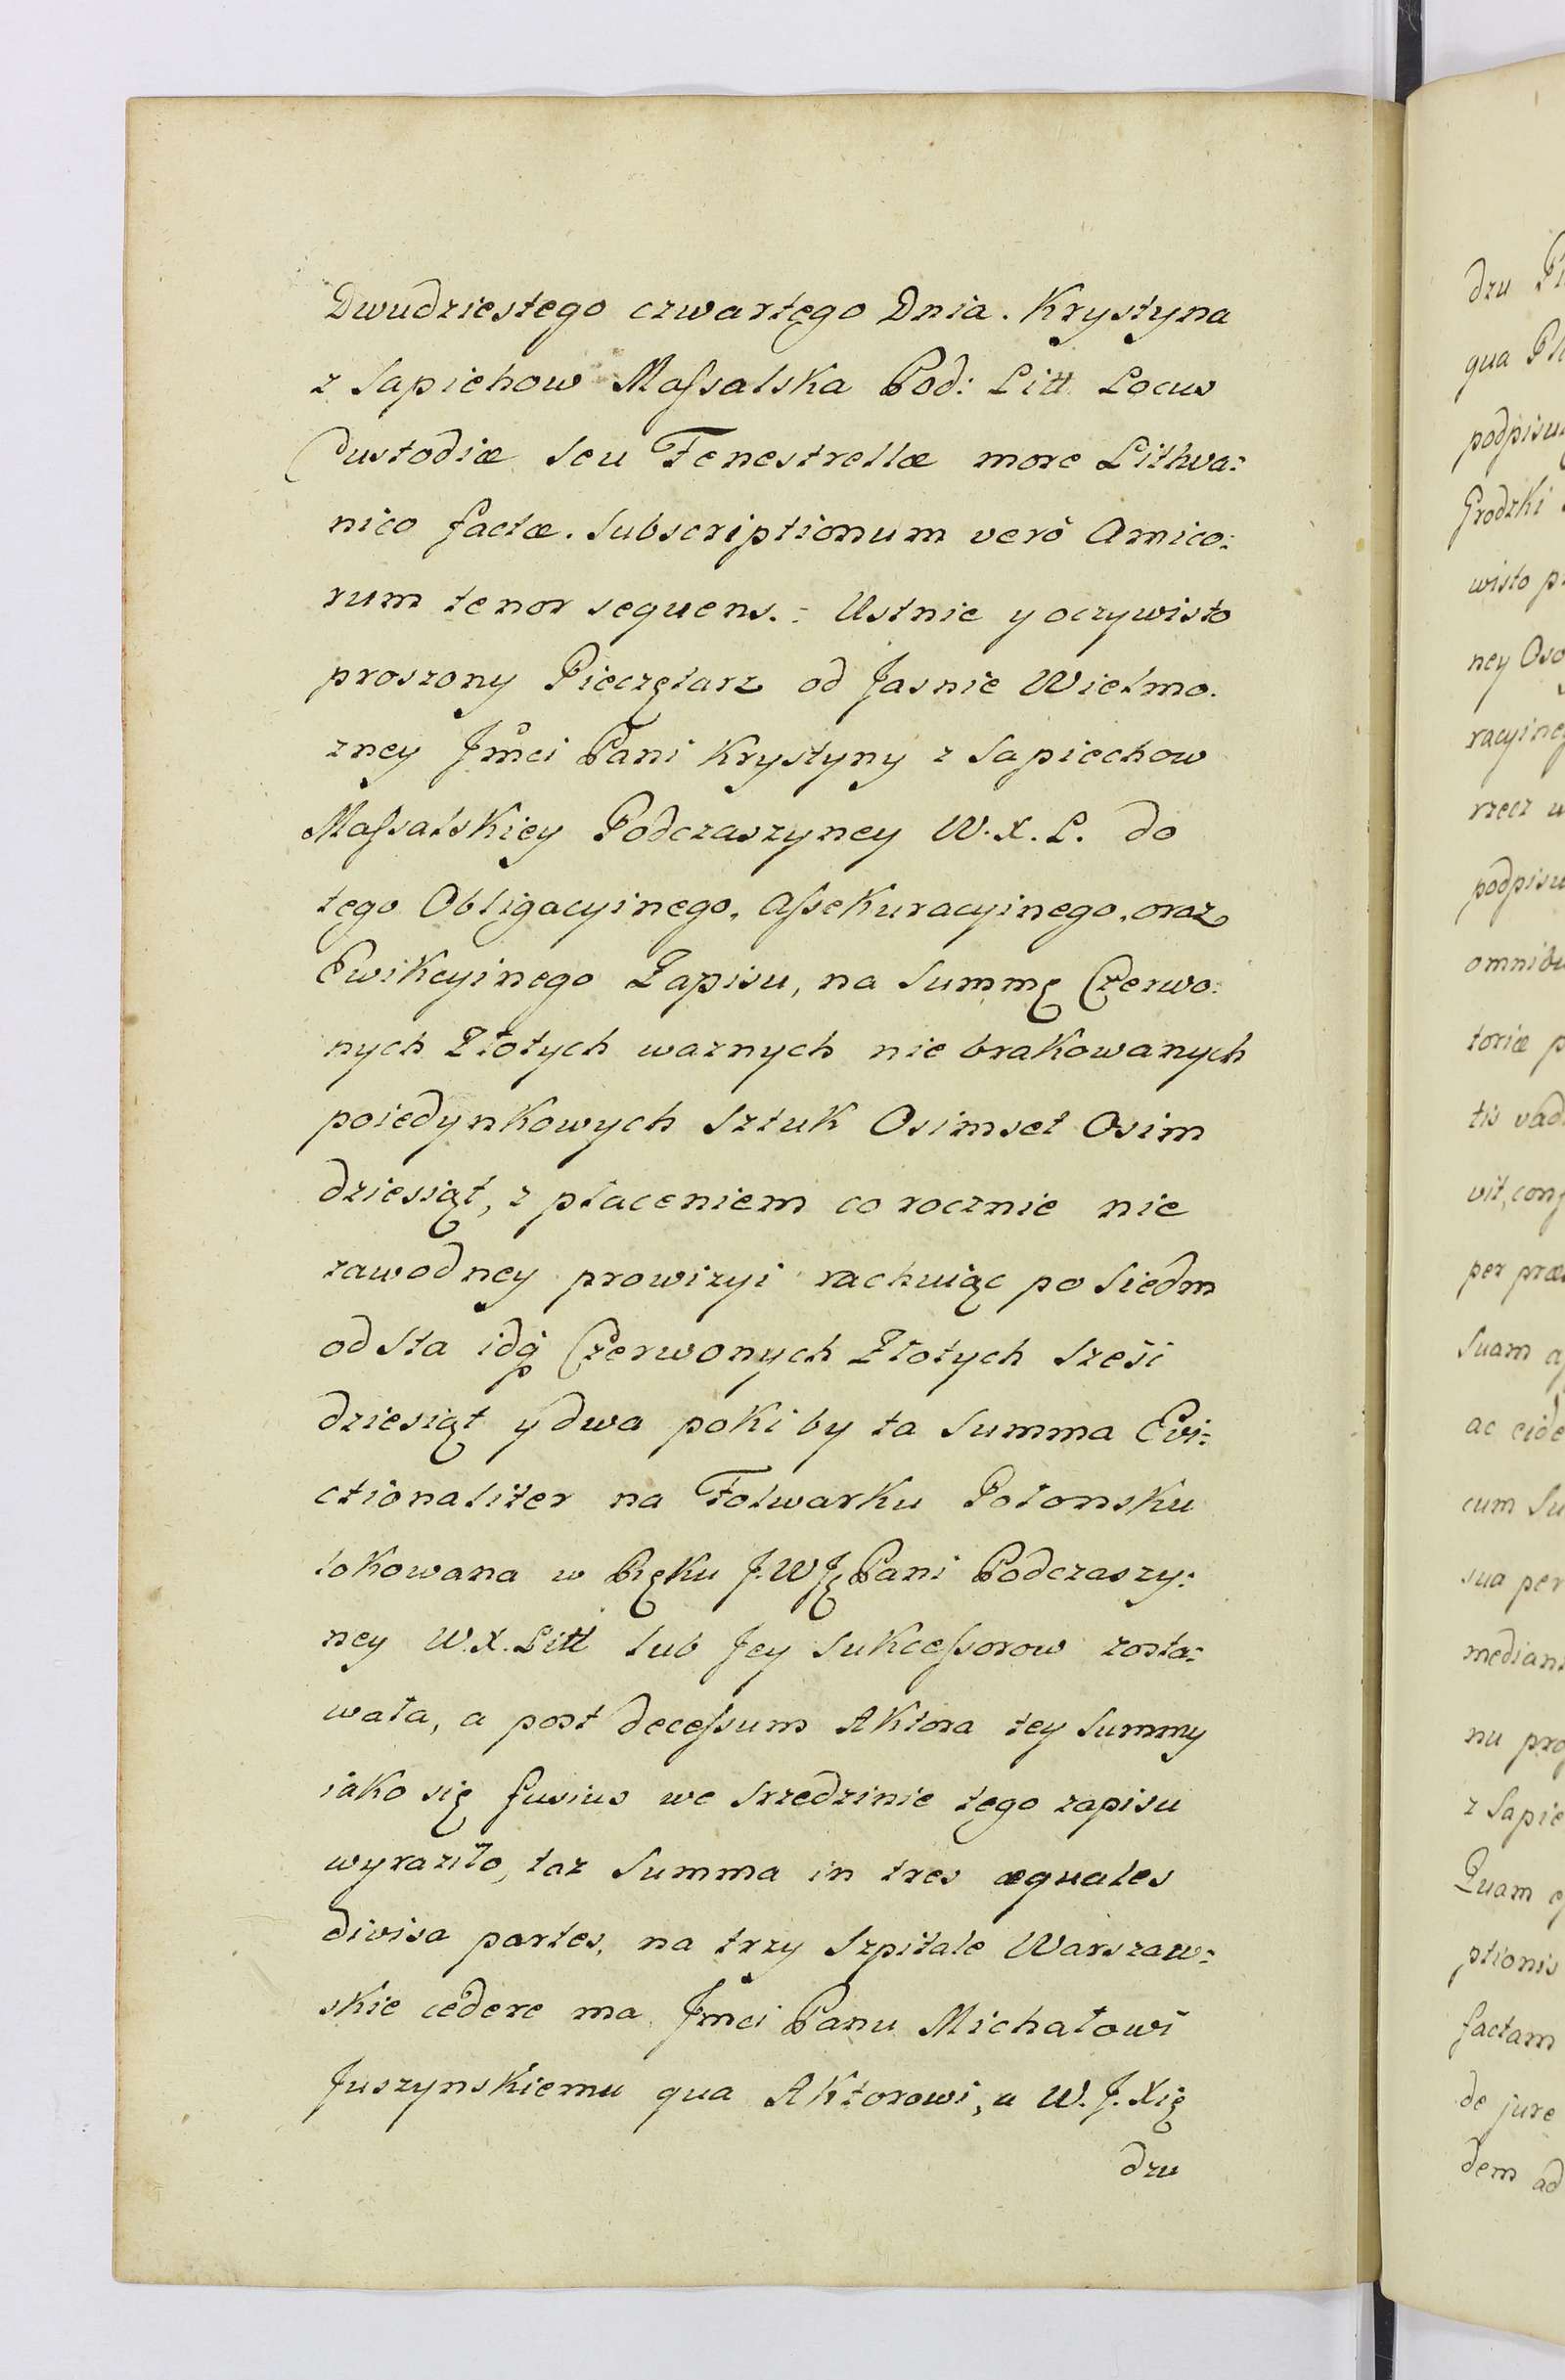 Dwudziestego czwartego Dnia. Krystyna
z Sapiehow Maſsalska Pod: Litt. Locus
Custodiæ seu Fenestrellæ more Lithva:
nico factæ. Subscriptionum verò Amico:
rum tenor sequens.: Ustnie y oczywisto
proszony Pieczętarz od Jasnie Wielmo.
zney Jmci Pani Krystyny z Sapiechow
Maſsalskiey Podczaszyney W. X. L. do
tego Obligacyinego, Aſsekuracyinego, oraz
Ewikcyinego Zapisu, na Summę Czerwo:
nych Złotych waznych nie brakowanych
poiedynkowych Sztuk Osimset Osim
dziesiąt, z płaceniem co rocznie nie
zawodney prowizyi rachuiąc po Siedm
od Sta idq̨ Czerwonych Złotych Sześć
dziesiąt y dwa poki by ta Summa Evi:
ctionaliter na Folwarku Połonsku
lokowana w Ręku J. W Ję Pani Podczaszy:
ney W. X. Litt lub Jey Sukceſsorow zosta:
wała, a post deceſsum Aktora tey Summy
iako się fusius we Srzedzinie tego zapisu
wyraziło, taz Summa in tres æquales
divisa partes, na trzy Szpitale Warszaw:
skie cedere ma. Jmci Panu Michałowi
Juszynskiemu qua Aktorowi, a W. J. Xię
dzu
dzu
qua
Grodzki
wisto
ney
rzecz
toriæ
tis
per
Suam
ac
cum Su
sua per
nu
z Sapie
Quam
ptionis
factam
de jure
dem ad